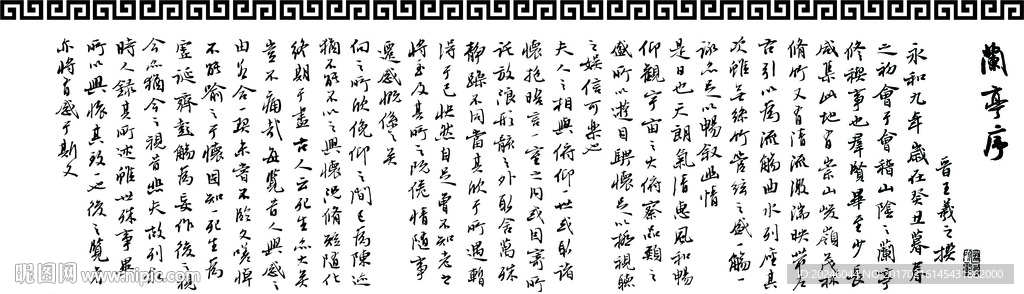 蘭亭序
晋王羲之撰
永和九年歲在癸丑暮春
之初會于會稽山陰之蘭亭
修禊事也羣賢畢至少長
咸集此地有崇山峻嶺茂林
修竹又有清流激湍映帶左
右引以為流觴曲水列座其
次雖無絲竹管弦之盛一觴一
詠亦足以暢叙幽情
是日也天朗氣清惠風和暢
仰觀宇宙之大俯察品類之
盛所以遊目騁懷足以極視聽
之娛信可樂也
夫人之相與俯仰一世或取諸
懷抱晤言一室之内或因寄所
託放浪形骸之外取舍萬殊
靜躁不同當其欣于所遇輙
得于己怏然自足曾不知老之
將至及其所之既倦情隨事
遷感慨係之矣
向之所欣俛仰之間已為陳迹
猶不能不以之興懷況修短隨化
終期于盡古人云死生亦大矣
豈不痛哉每覽昔人興感之
由若合一契未嘗不臨文嗟悼
不能喻之于懷固知一死生為
虛誕齊彭殤為妄作後之視
今亦猶今之視昔悲夫故列叙
時人錄其所述雖世殊事異
所以興懷其致一也後之覽者
亦將有感于斯文
昵图网
www.nipic.com